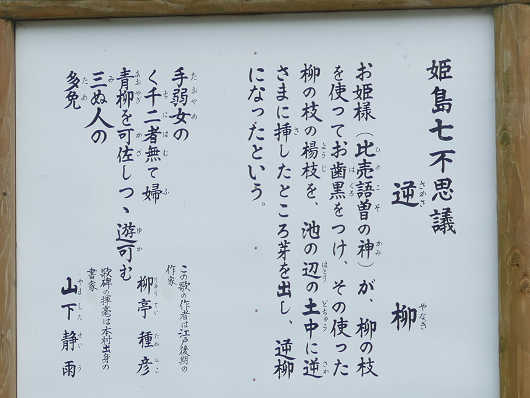 姫島七不思議
逆柳
お姫様（比売語曽の神）が、柳の枝
を使ってお歯黒をつけ、その使った
柳の枝の楊枝を、池の辺の土中に逆
さまに挿したところ芽を出し、逆柳
になったという。
手弱女の
く千二者無て婦
青柳を可佐しつゝ遊可む
三ぬ人の
多免
この歌の作者は江戸後期の
作家
柳亭種彦
歌碑の揮毫は本村出身の
書家
山下静雨